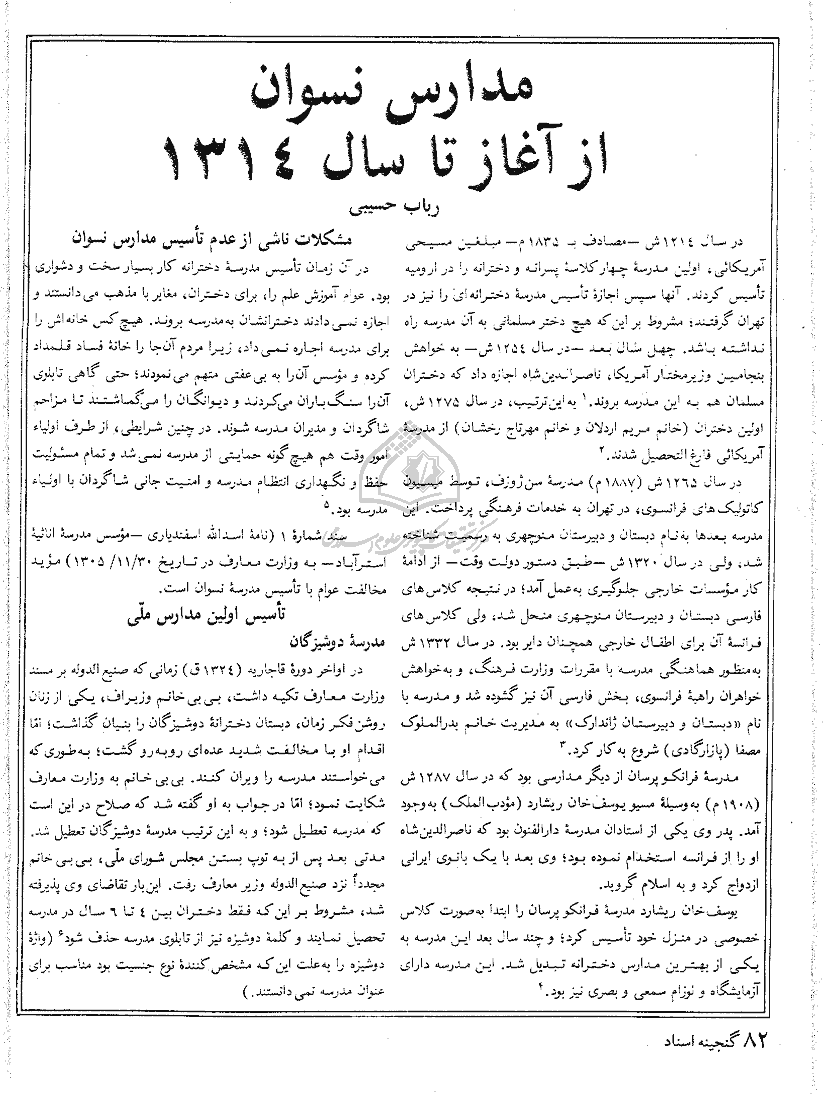 مدارس نسوان
از آغاز تا سال ۱۳۱۴
رباب حسیبی
در سال ۱۲۱۴ ش —مصادف بـ ۱۸۳۵ م— مبلغین مسیحی
آمریکائی، اولین مدرسهٔ چهار کلاسهٔ پسرانه و دخترانه را در ارومیه
تأسیس کردند. آنها سپس اجازهٔ تأسیس مدرسهٔ دخترانه‌ای را نیز در
تهران گرفتند؛ مشروط بر این که هیچ دختر مسلمانی به آن مدرسه راه
نداشته باشد. چهل سال بعد —در سال ۱۲۵۴ ش— به خواهش
بنجامین وزیرمختار آمریکا، ناصرالدین‌شاه اجازه داد که دختران
مسلمان هم به این مدرسه بروند.۱ به این ترتیب، در سال ۱۲۷۵ ش،
اولین دختران (خانم مریم اردلان و خانم مهرتاج رخشان) از مدرسهٔ
آمریکائی فارغ التحصیل شدند.۲
در سال ۱۲۶۵ ش (۱۸۸۷ م) مدرسهٔ سن‌ژوزف، توسط میسیون
کاتولیک‌های فرانسوی، در تهران به خدمات فرهنگی پرداخت. این
مدرسه بعدها به‌نام دبستان و دبیرستان منوچهری به رسمیت شناخته
شد، ولی در سال ۱۳۲۰ ش —طبق دستور دولت وقت— از ادامهٔ
کار مؤسسات خارجی جلوگیری به‌عمل آمد؛ در نتیجه کلاس‌های
فارسی دبستان و دبیرستان منوچهری منحل شد، ولی کلاس‌های
فرانسهٔ آن برای اطفال خارجی همچنان دایر بود. در سال ۱۳۳۲ ش
به‌منظور هماهنگی مدرسه با مقررات وزارت فرهنگ، و به‌خواهش
خواهران راهبهٔ فرانسوی، بخش فارسی آن نیز گشوده شد و مدرسه با
نام «دبستان و دبیرستان ژاندارک» به مدیریت خانم بدرالملوک
مصفا (پازارگادی) شروع به کار کرد.۳
مدرسهٔ فرانکو پرسان از دیگر مدارسی بود که در سال ۱۲۸۷ ش
(۱۹۰۸ م) به‌وسیلهٔ مسیو یوسف‌خان ریشارد (مؤدب‌الملک) به‌وجود
آمد. پدر وی یکی از استادان مدرسهٔ دارالفنون بود که ناصرالدین‌شاه
او را از فرانسه استخدام نموده بود؛ وی بعد با یک بانوی ایرانی
ازدواج کرد و به اسلام گروید.
یوسف‌خان ریشارد مدرسهٔ فرانکو پرسان را ابتدا به‌صورت کلاس
خصوصی در منزل خود تأسیس کرد؛ و چند سال بعد این مدرسه به
یکی از بهترین مدارس دخترانه تبدیل شد. این مدرسه دارای
آزمایشگاه و لوازم سمعی و بصری نیز بود.۴
مشکلات ناشی از عدم تأسیس مدارس نسوان
در آن زمان تأسیس مدرسهٔ دخترانه کار بسیار سخت و دشواری
بود. عوام آموزش علم را، برای دختران، مغایر با مذهب می‌دانستند و
اجازه نمی‌دادند دخترانشان به‌مدرسه بروند. هیچ‌کس خانه‌اش را
برای مدرسه اجاره نمی‌داد، زیرا مردم آن‌جا را خانهٔ فساد قلمداد
کرده و مؤسس آن را به بی‌عفتی متهم می‌نمودند؛ حتی گاهی تابلوی
آن را سنگ‌باران می‌کردند و دیوانگان را می‌گماشتند تا مزاحم
شاگردان و مدیران مدرسه شوند. در چنین شرایطی، از طرف اولیاء
امور وقت هم هیچ‌گونه حمایتی از مدرسه نمی‌شد و تمام مسئولیت
حفظ و نگهداری انتظام مدرسه و امنیت جانی شاگردان با اولیاء
مدرسه بود.۵
سند شمارهٔ ۱ (نامهٔ اسدالله اسفندیاری —مؤسس مدرسهٔ اناثیهٔ
استرآباد— به وزارت معارف در تاریخ ۱۳۰۵/۱۱/۳۰) مؤید
مخالفت عوام با تأسیس مدرسهٔ نسوان است.
تأسیس اولین مدارس ملّی
مدرسهٔ دوشیزگان
در اواخر دورهٔ قاجاریه (۱۳۲۴ ق) زمانی که صنیع الدوله بر مسند
وزارت معارف تکیه داشت، بی‌بی خانم وزیراف، یکی از زنان
روشن‌فکر زمان، دبستان دخترانهٔ دوشیزگان را بنیان گذاشت؛ امّا
اقدام او با مخالفت شدید عده‌ای روبه‌رو گشت؛ به‌طوری که
می‌خواستند مدرسه را ویران کنند. بی‌بی خانم به وزارت معارف
شکایت نمود؛ امّا در جواب به او گفته شد که صلاح در این است
که مدرسه تعطیل شود؛ و به این ترتیب مدرسهٔ دوشیزگان تعطیل شد.
مدتی بعد پس از به توپ بستن مجلس شورای ملّی، بی‌بی خانم
مجدداً نزد صنیع الدوله وزیر معارف رفت. این‌بار تقاضای وی پذیرفته
شد، مشروط بر این که فقط دختران بین ۴ تا ۶ سال در مدرسه
تحصیل نمایند و کلمهٔ دوشیزه نیز از تابلوی مدرسه حذف شود۶ (واژهٔ
دوشیزه را به‌علت این که مشخص‌کنندهٔ نوع جنسیت بود مناسب برای
عنوان مدرسه نمی‌دانستند.)
۸۲ گنجینه اسناد